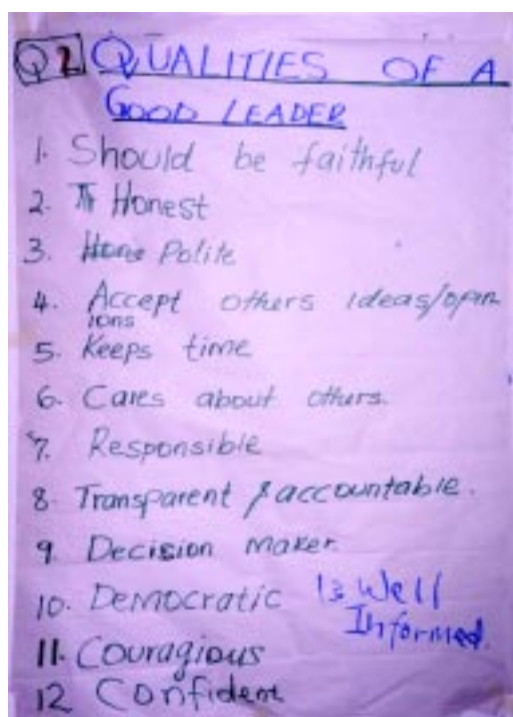 Q2 QUALITIES OF A
GOOD LEADER
1. Should be faithful
2. Honest
3. Polite
4. Accept others ideas/opin
ions
5. Keeps time
6. Cares about others.
7. Responsible
8. Transparent & accountable.
9. Decision maker
10. Democratic
11. Couragious
12 Confident
13 Well
Informed.